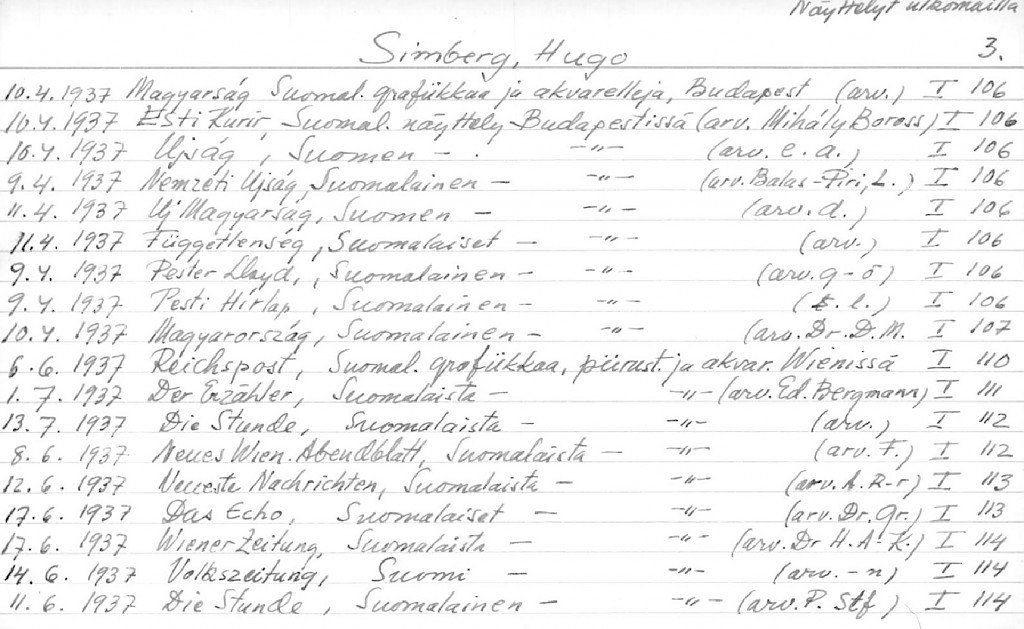 Näyttelyt ulkomailla
Simberg, Hugo 3.
10.4.1937 Magyarság Suomal. grafiikkaa ja akvarelleja, Budapest (arv.) I 106
10.4.1937 Esti Kurir, Suomal. näyttely Budapestissä (arv. Mihály Boross) I 106
10.4.1937 Ujság, Suomen - . -"- (arv. e. a.) I 106
9.4.1937 Nemzeti Ujság, Suomalainen - -"- (arv. Balas-Piri, L.) I 106
11.4.1937 Uj Magyarság, Suomen - -"- (arv. d.) I 106
11.4.1937 Függetlenség, Suomalaiset - -"- (arv.) I 106
9.4.1937 Pester Lloyd, Suomalainen - -"- (arv. g-ö) I 106
9.4.1937 Pesti Hírlap, Suomalainen - -"- (l.) I 106
10.4.1937 Magyarország, Suomalainen - -"- (arv. Dr. D.M. I 107
6.6.1937 Reichspost, Suomal. grafiikkaa, piirust. ja akvar. Wienissä I 110
1.7.1937 Der Erzähler, Suomalaista - -"- (arv. Ed. Bergmann) I 111
13.7.1937 Die Stunde, Suomalaista - -"- (arv.) I 112
8.6.1937 Neues Wien. Abendblatt, Suomalaista - -"- (arv. F.) I 112
12.6.1937 Neueste Nachrichten, Suomalaista - -"- (arv. A. R-r) I 113
17.6.1937 Das Echo, Suomalaiset - -"- (arv. Dr. Gr.) I 113
17.6.1937 Wiener Zeitung, Suomalaista - -"- (arv. Dr H. A-K.) I 114
14.6.1937 Volkszeitung, Suomi - -"- (arv. -n) I 114
11.6.1937 Die Stunde, Suomalainen - -"- (arv. P. Stf) I 114